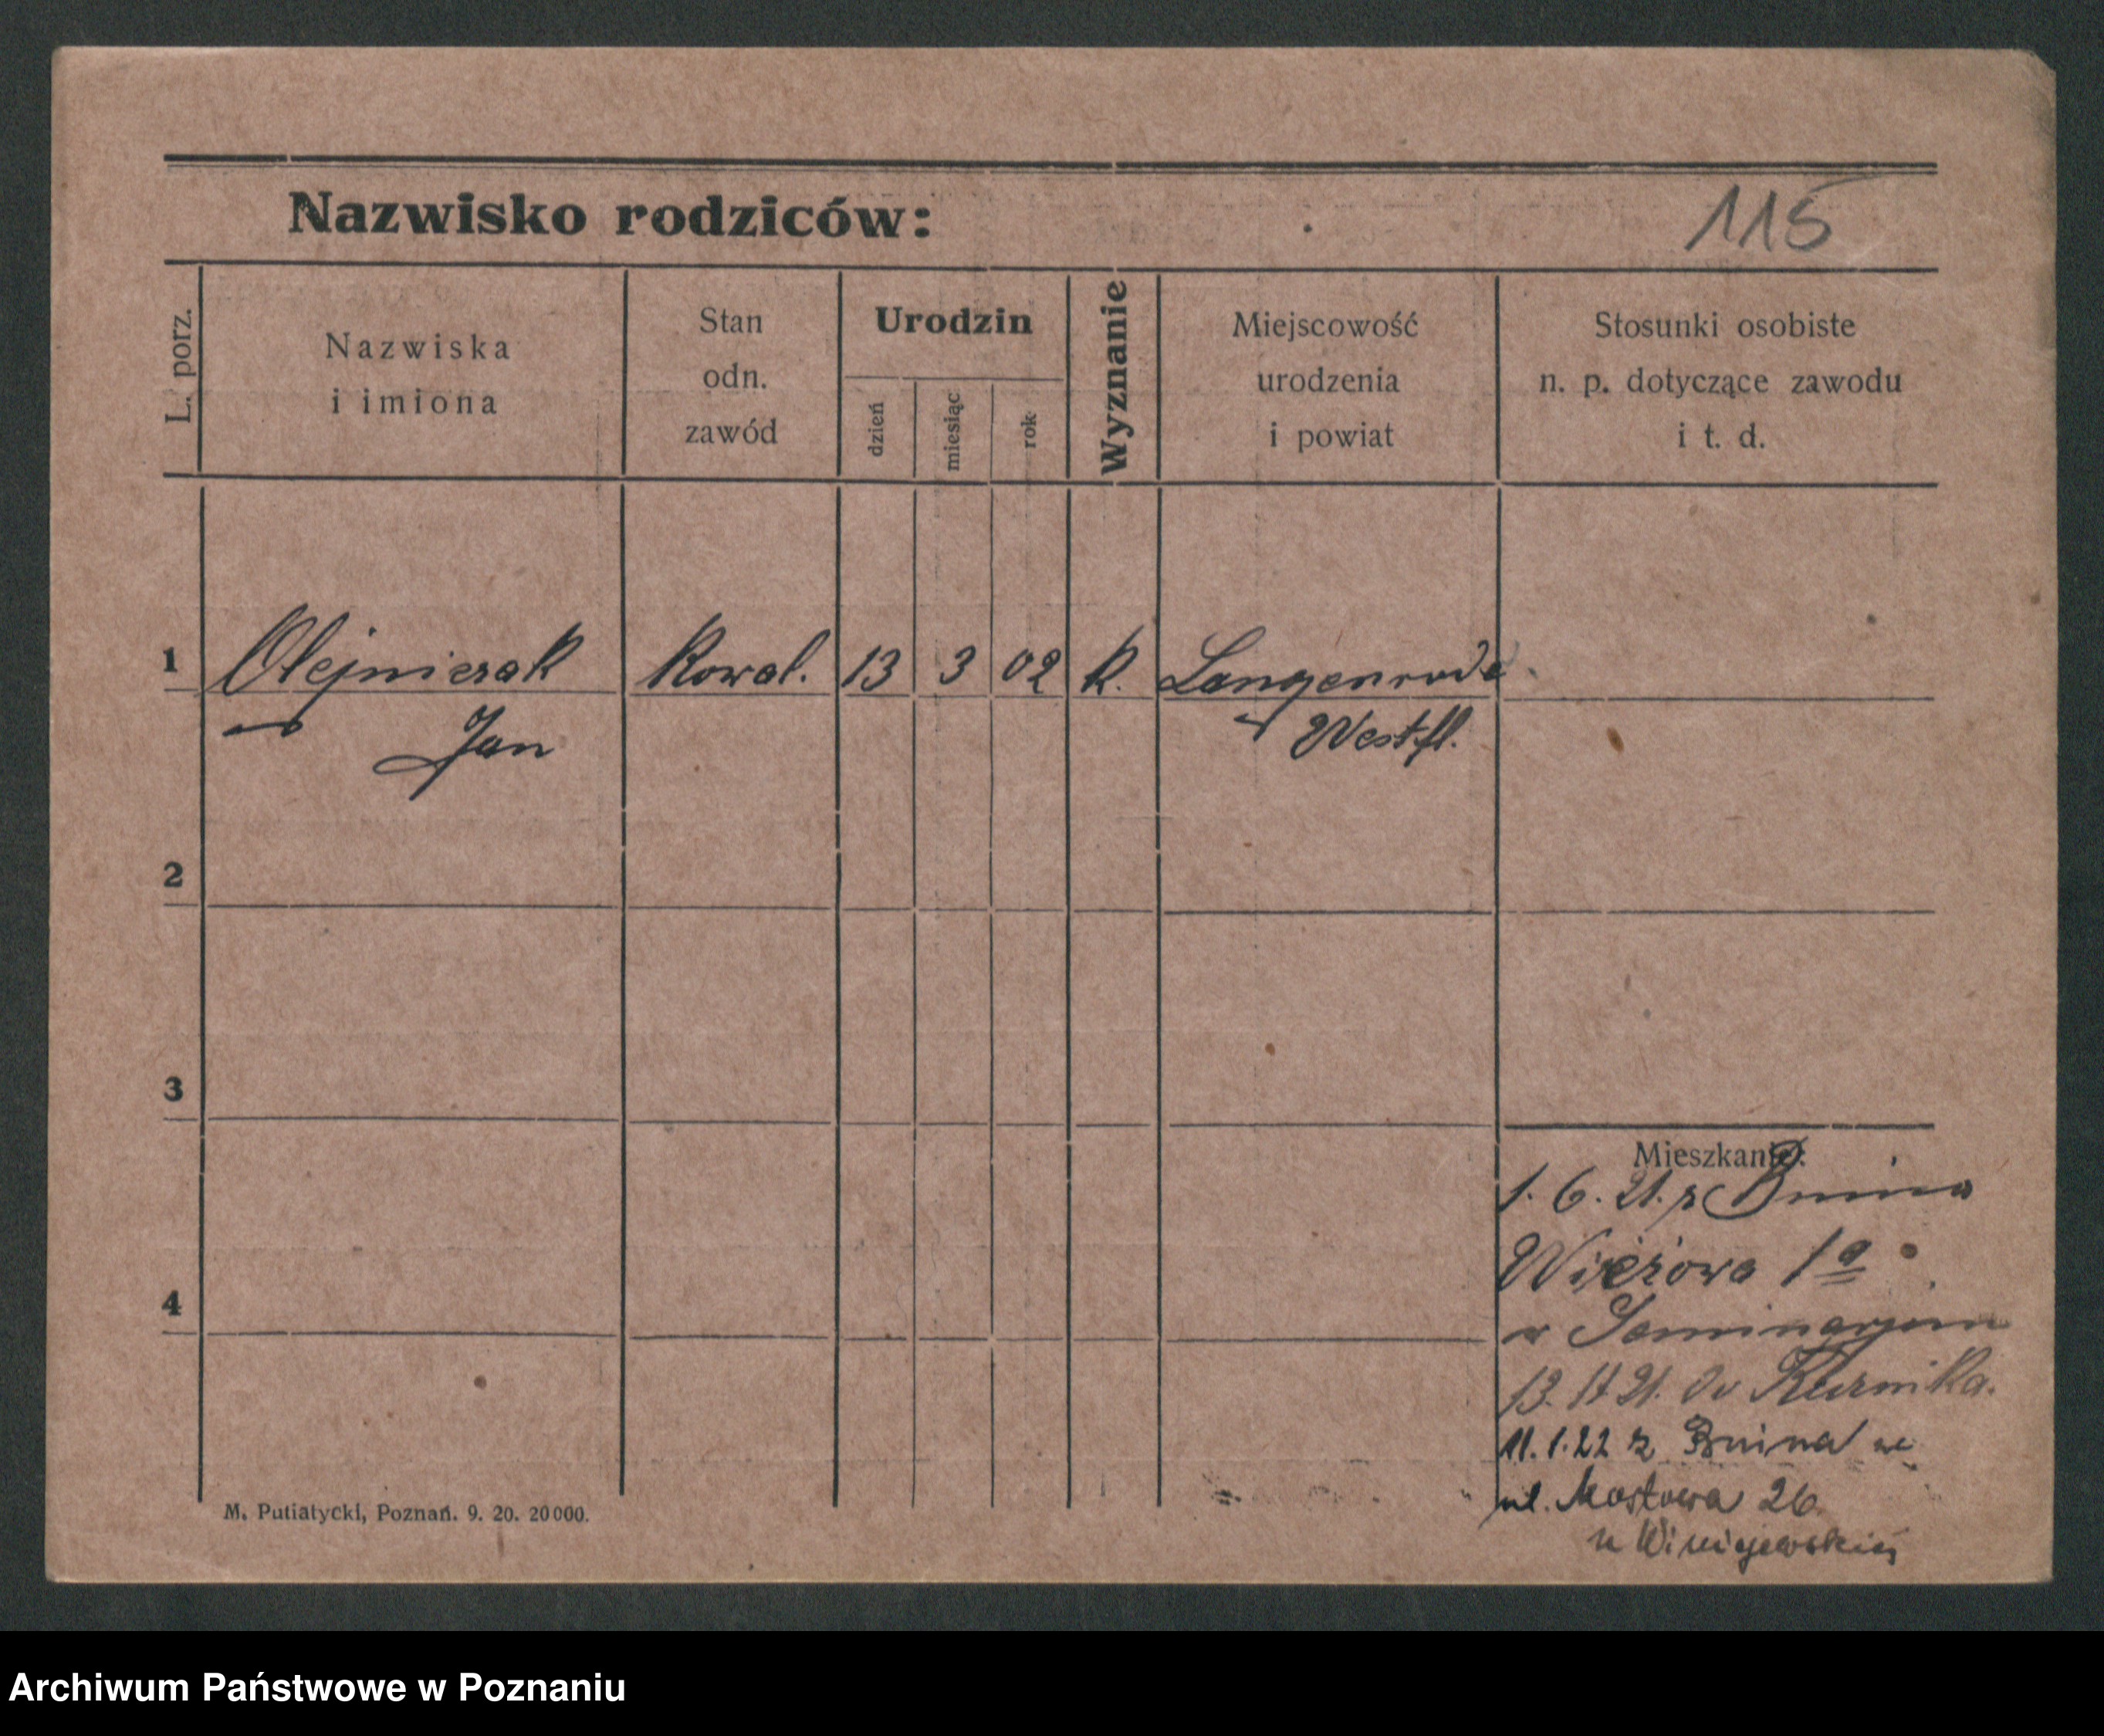 Nazwisko rodziców:
115
L. porz.
Nazwiska
i imiona
Stan
odn.
zawód
Urodzin
dzień
miesiąc
rok
Wyznanie
Miejscowość
urodzenia
i powiat
Stosunki osobiste
n. p. dotyczące zawodu
i t. d.
1 Olejniczak Kowal. 13 3 02 k. Langenrode
Jan Westfl.
2
3
4
Mieszkanie:
1. 6. 21. z Bnina
Wieżowa 1a
w Seminarjum
13. 11 21. do Kurnika.
11. 1. 22 z Bnina
ul. Mostowa 26
u
M. Putiatycki, Poznań. 9. 20. 20000.
Archiwum Państwowe w Poznaniu